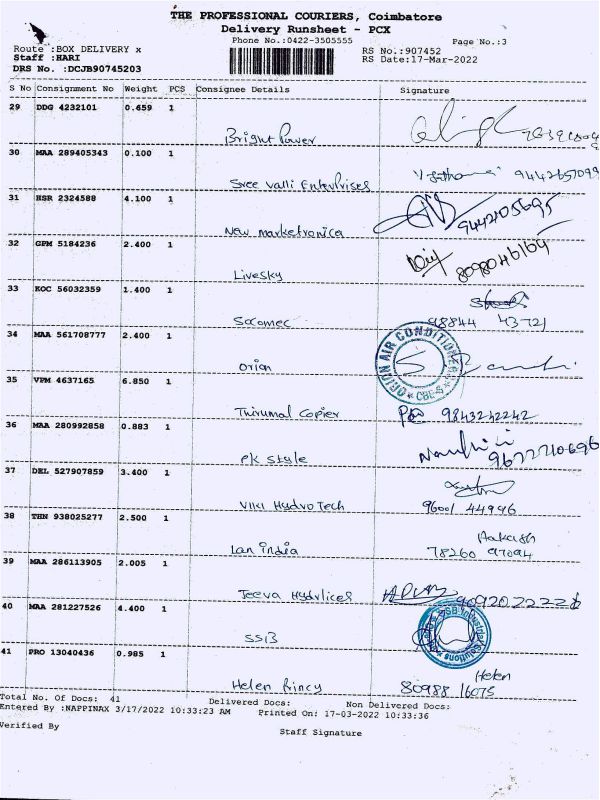 THE PROFESSIONAL COURIERS, Coimbatore
Delivery Runsheet - PCX
Phone No.:0422-3505555
Page No.:3
Route :BOX DELIVERY x
Staff :HARI
DRS No. :DCJB90745203
RS No.:907452
RS Date:17-Mar-2022
S No Consignment No Weight PCS Consignee Details Signature
29 DDG 4232101 0.659 1
Bright Power
30 MAA 289405343 0.100 1
Sree Valli Enterprises 9442657099
31 HSR 2324588 4.100 1
New marketronica 9442105695
32 GPM 5184236 2.400 1
Livesky 8098046164
33 KOC 56032359 1.400 1
Socomec 98844 43721
34 MAA 561708777 2.400 1
orian
ORION AIR CONDITIONERS
CBE-5
35 VPM 4637165 6.850 1
Thirumal Copier 9843242242
36 MAA 280992858 0.883 1
PK Style 9677710696
37 DEL 527907859 3.400 1
Viki Hydro Tech 96001 44996
38 THN 938025277 2.500 1
Lan india Aakash
78260 97094
39 MAA 286113905 2.005 1
Jeeva Hydvlices
40 MAA 281227526 4.400 1
SSB
SSB Industrial Solutions
41 PRO 13040436 0.985 1
Helen Princy Helen
80988 16075
Total No. Of Docs: 41 Delivered Docs: Non Delivered Docs:
Entered By :NAPPINAX 3/17/2022 10:33:23 AM Printed On: 17-03-2022 10:33:36
Verified By
Staff Signature